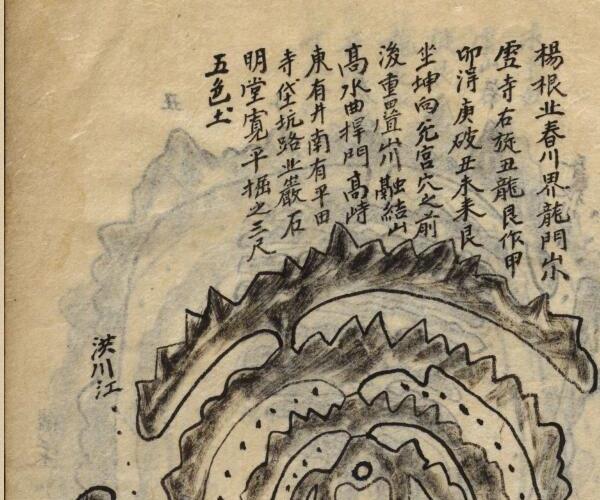 楊根北春川界龍門山
雲寺右旋丑龍艮作甲
卯淂庚破丑未来艮
坐坤向宮穴之前
後重疊山川融結山
高水曲捍門高峙
東有井南有平田
寺垈坑路北巖石
明堂寬平掘之三尺
五色土
洪川江